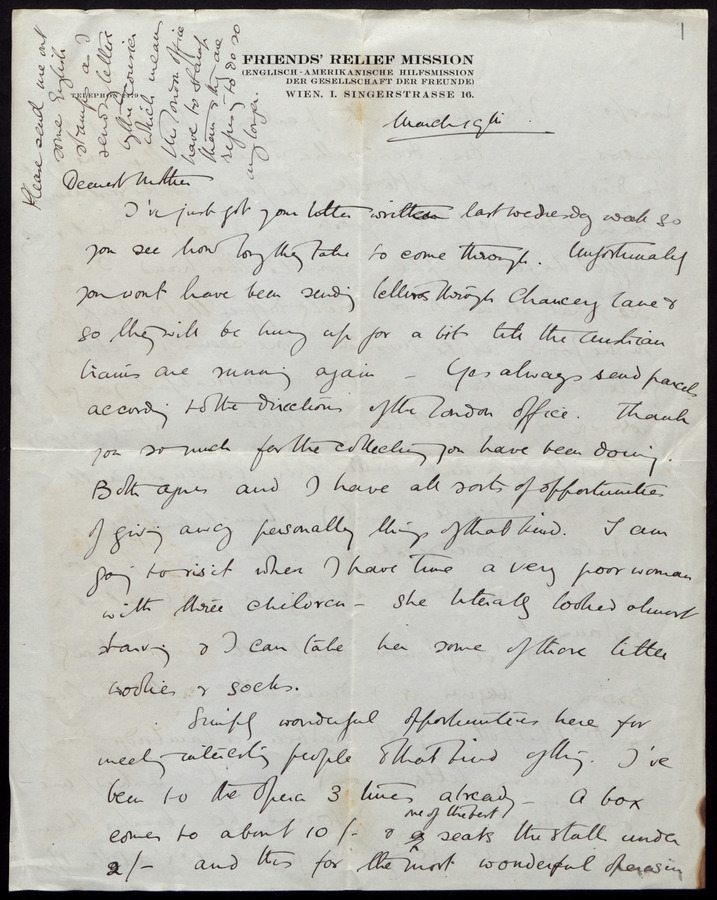 1
FRIENDS' RELIEF MISSION
(ENGLISCH-AMERIKANISCHE HILFSMISSION
DER GESELLSCHAFT DER FREUNDE)
WIEN, I. SINGERSTRASSE 16.
TELEPHON
Please send me out
some English
stamps as I
send letters
by the Courier
which means
the London Office
have to stamp
them & they are
refusing to do so
any longer.
March 19th
Dearest Mother
I've just got your letter written last wednesday week so
you see how long they take to come through. Unfortunately
you wont have been sending letters through Chancery Lane &
so they will be hung up for a bit till the Austrian
trains are running again – Yes always send parcels
according to the directions of the London office. Thank
you so much for the collecting you have been doing.
Both Agnes and I have all sorts of opportunities
of giving away personally things of that kind. I am
going to visit when I have time a very poor woman
with three children – she literally looked almost
starving & I can take her some of those little
woolies & socks.
Simply wonderful opportunities here for
meeting interesting people & that kind of thing. I've
been to the Opera 3 times already – A box
comes to about 10/- & one of the best seats the stalls under
2/- and this for the most wonderful operas in